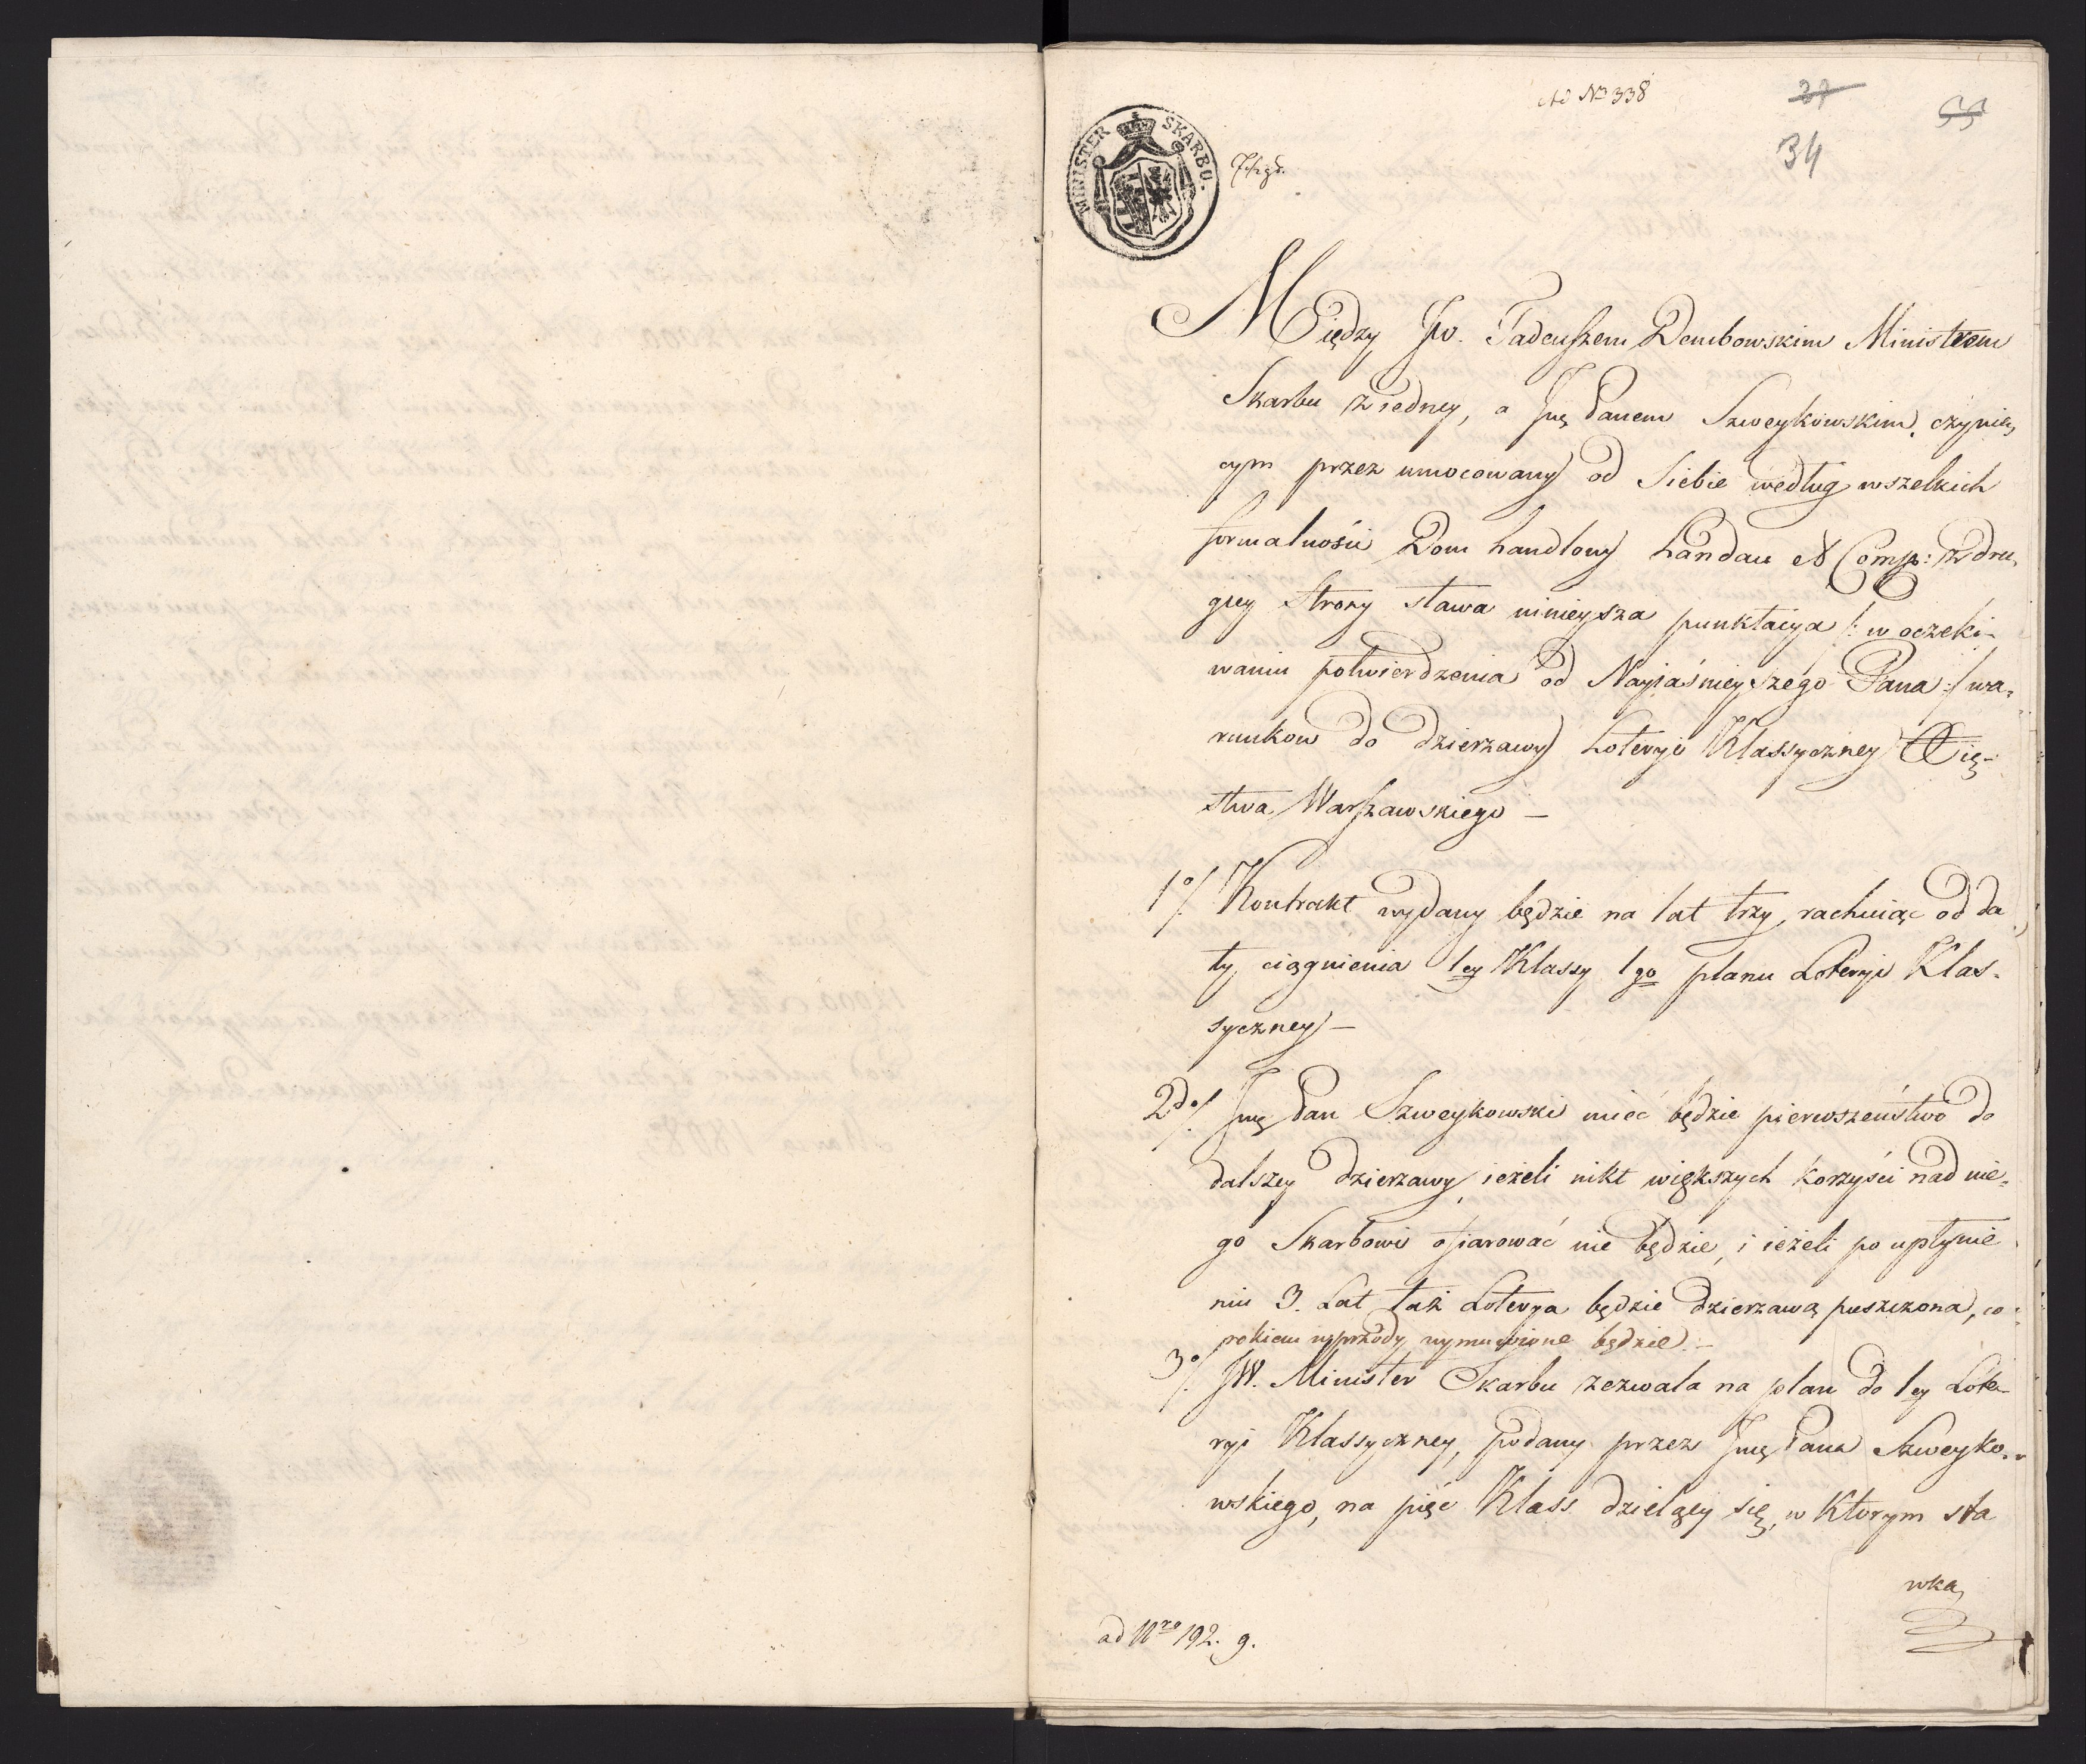 ad Nro 338
37
55
34
MINISTER SKARBU.
Między JW. Tadeuszem Dembowskim Ministrem
Skarbu z iedney, a Jmę Panem Szweykowskim, czynią,
cym przez umocowany od Siebie według wszelkich
formalności Dom handlowy Landau & Comp: z dru,
giey Strony stawa ninieysza punktacya /: w oczeki-
waniu potwierdzenia od Nayiaśnieyszego Pana :/ wa,
runkow do dzierzawy Loteryi Klassyczney Xię-
stwa Warszawskiego —
1o/. Kontrakt wydany będzie na lat trzy, rachuiąc od da,
ty ciągnienia 1ey Klassy 1go planu Loteryi Klas-
syczney —
2do/. Jmę Pan Szweykowski mieć będzie pierwszeństwo do
dalszey dzierzawy, ieżeli nikt większych korzyści nad nie,
go Skarbowi ofiarować nie będzie, i ieżeli po upłynie
niu 3. Lat taż Loterya będzie dzierzawą puszczona, co
rokiem wprzody wymuwione będzie. —
3o/. JW. Minister Skarbu zezwala na plan do 1ey Lote-
ryi Klassyczney, podany przez Jmę Pana Szweyko-
wskiego, na pięć Klass dzielący się, w ktorym sta
wka,
ad Nro 192. g.